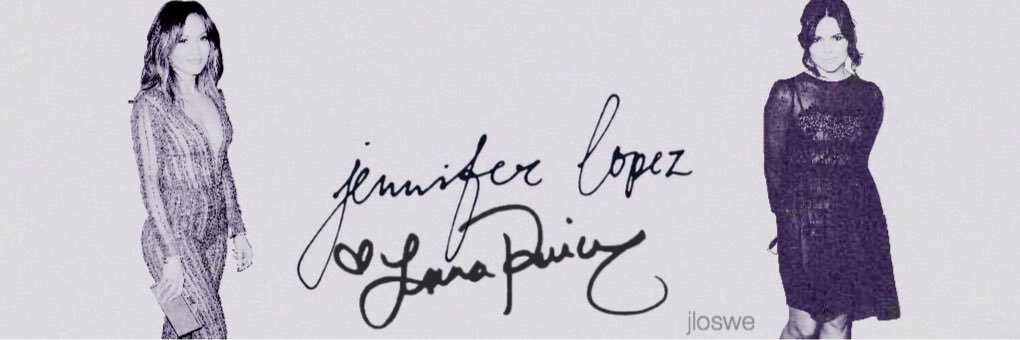 jennifer lopez
Lana
jloswe